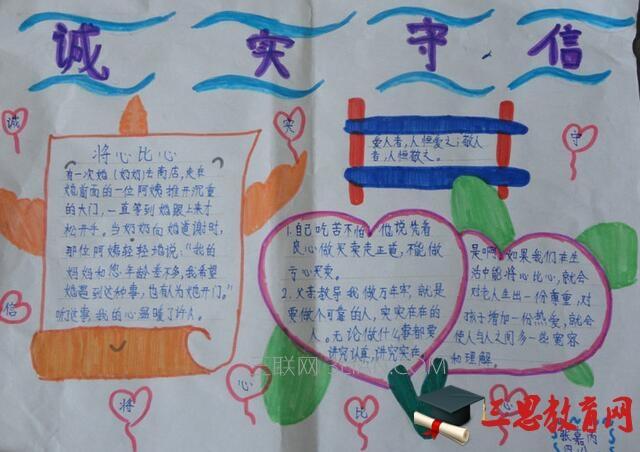 诚 实 守 信
诚
实
守
信
将
心
比
心
将心比心
有一次奶(奶奶)去商店,走在
她前面的一位阿姨推开沉重
的大门,一直等到她跟上来才
松开手。当奶奶向她道谢时,
那位阿姨轻轻地说:“我的
妈妈和您年龄差不多,我希望
她遇到这种事,也有人为她开门。”
听这事,我的心温暖了许久。
爱人者,人恒爱之;敬人
者,人恒敬之。
1.自己吃苦不怕 他说凭着
良心做买卖走正道,不能做
亏心买卖。
2.父亲教导我做万年牢,就是
要做个可靠的人,实实在在的
人。无论做什么事都要
讲究认真,讲究实在。
是啊,如果我们在生
活中能将心比心,就会
对老人生出一份尊重,对
孩子增加一份热爱,就会
使人与人之间多一些宽容
和理解。
三联网 3LIAN.COM
毕思教育网
张嘉